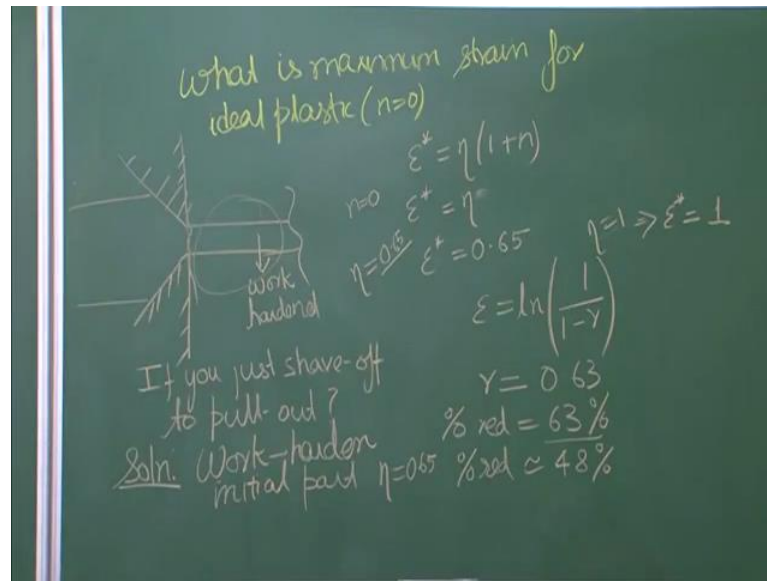 What is maximum strain for
ideal plastic (n=0)
ε* = η(1+n)
n=0 ε* = η
η=0.65 ε* = 0.65
η=1 ⇒ ε* = 1
work
hardened
ε = ln(1/(1-r))
If you just shave-off
to pull-out?
r = 0.63
% red = 63%
Soln. Work-harden
initial part η=0.65 % red ≃ 48%